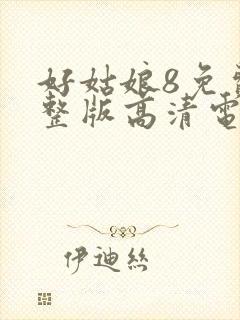 好姑娘8免
整版高清電
伊迪絲